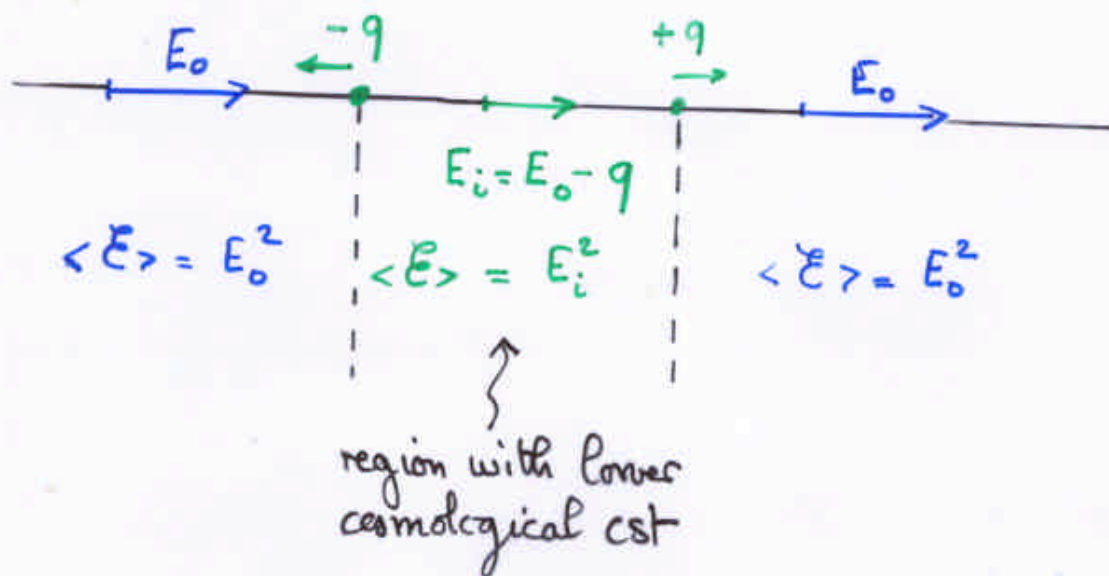 -q +q
E₀ E₀
Eᵢ = E₀ - q
<ℰ> = E₀² <ℰ> = Eᵢ² <ℰ> = E₀²
region with lower
cosmological cst